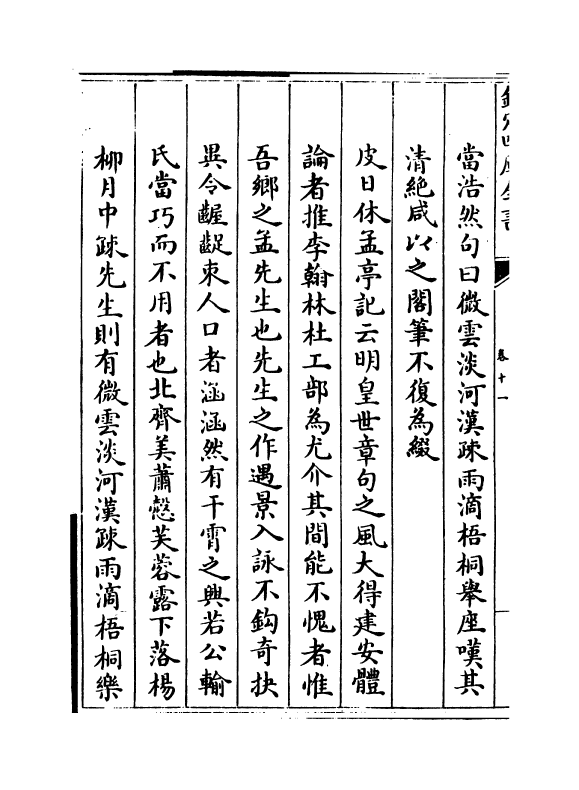 欽定四庫全書
卷十一
當浩然句曰微雲淡河漢疎雨滴梧桐舉座嘆其
清絶咸以之閣筆不復為綴
皮日休孟亭記云明皇世章句之風大得建安體
論者推李翰林杜工部為尤介其間能不愧者惟
吾鄉之孟先生也先生之作遇景入詠不鈎奇抉
異令齷齪束人口者涵涵然有干霄之興若公輸
氏當巧而不用者也北齊美蕭慤芙蓉露下落楊
柳月中疎先生則有微雲淡河漢疎雨滴梧桐樂